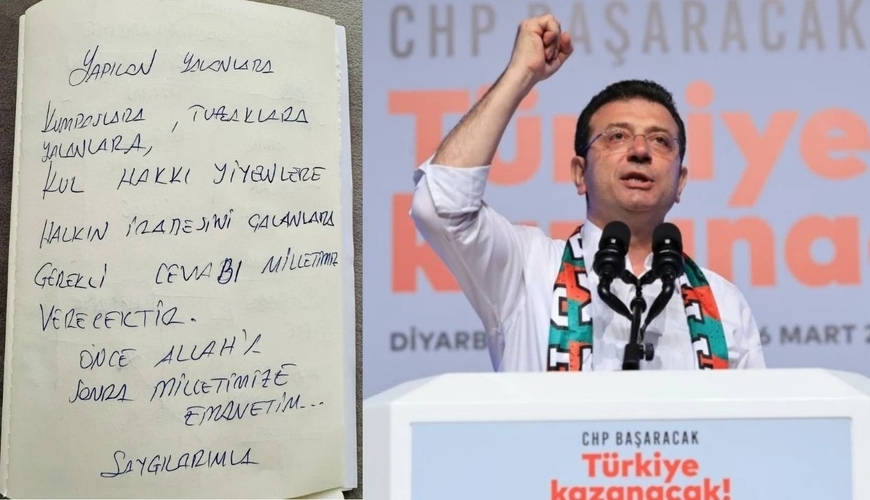 YAPILAN YALANLARA
KUMPASLARA, TUZAKLARA
YALANLARA,
KUL HAKKI YİYENLERE
HALKIN İRADESİNİ ÇALANLARA
GEREKLİ CEVABI MİLLETİMİZ
VERECEKTİR.
ÖNCE ALLAH'A
SONRA MİLLETİMİZE
EMANETİM...
SAYGILARIMLA
CHP BAŞARACAK
Türkiye
kazana
DİYARB 6 MART 2
CHP BAŞARACAK
Türkiye
kazanacak!